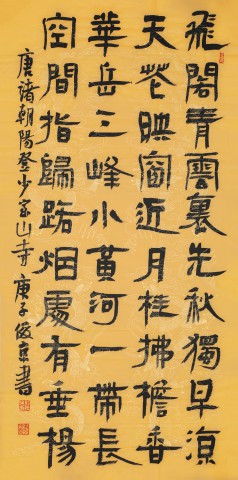 飛閣青雲裏先秋獨早涼
天花映窗近月桂拂檐香
華岳三峰小黃河一帶長
空間指歸路烟處有垂楊
唐褚朝陽登少室山寺庚子俊京書